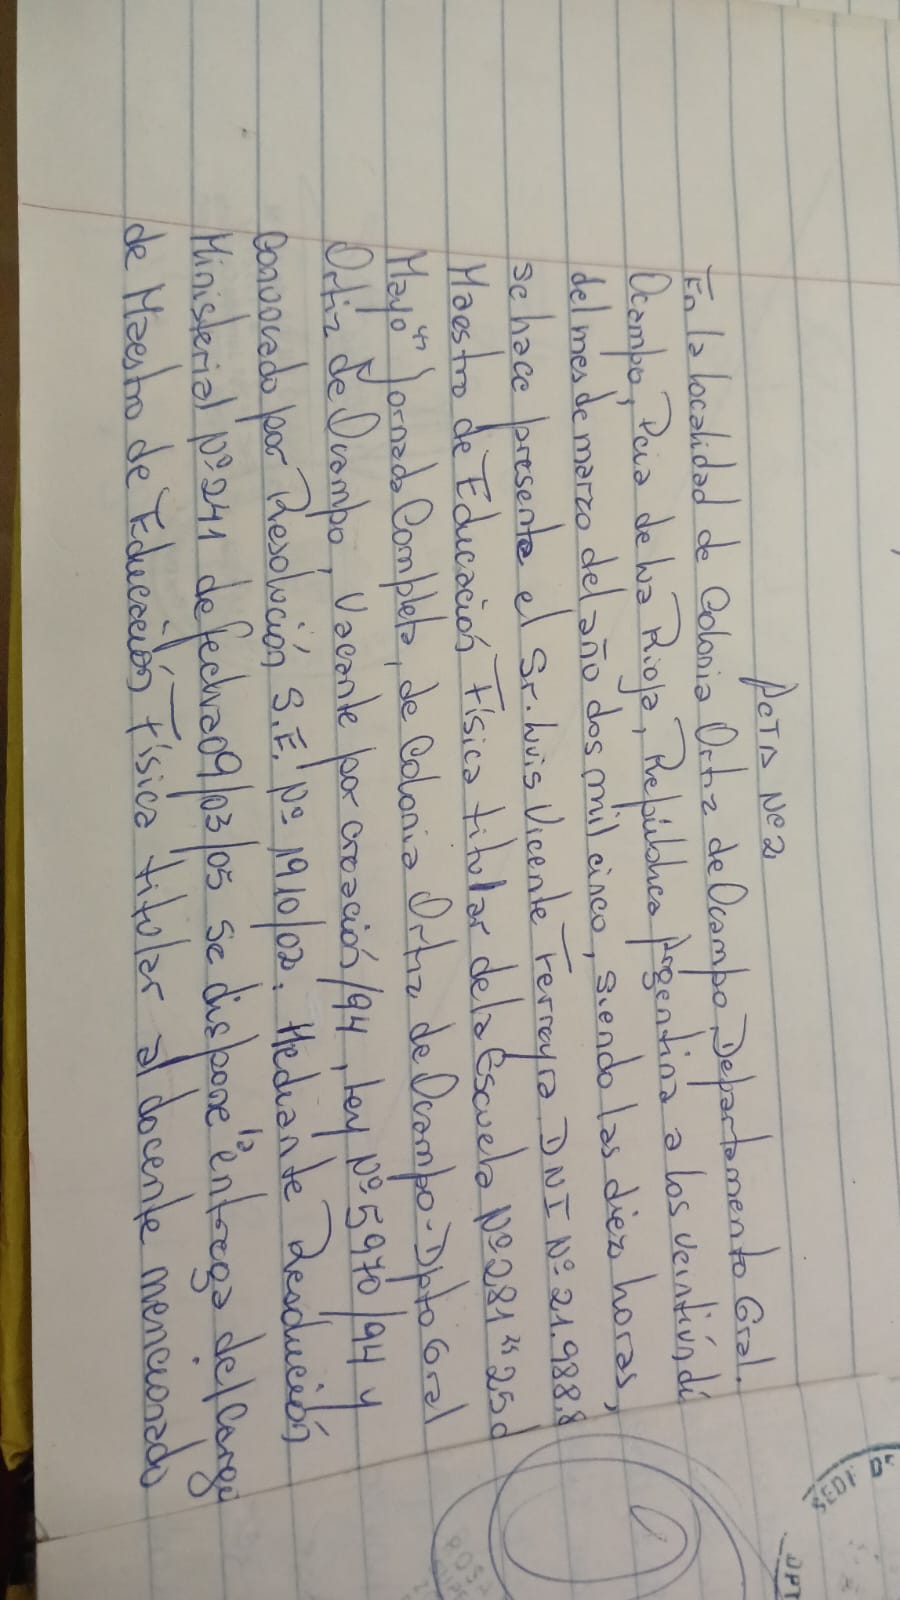 Acta Nº 2
En la localidad de Colonia Ortiz de Ocampo, Departamento Gral.
Ocampo, Pcia de La Rioja, República Argentina a los veintiún dí
del mes de marzo del año dos mil cinco, siendo las diez horas,
se hace presente el Sr. Luis Vicente Ferreyra DNI Nº 21.988.8
Maestro de Educación Física titular de la Escuela Nº 281 "25 d
Mayo" Jornada Completa, de Colonia Ortiz de Ocampo - Dpto Gral
Ortiz de Ocampo, Vacante por creación/94, Ley Nº 5970/94 y
Convocado por Resolución S.E. Nº 1910/02. Mediante Resolución
Ministerial Nº 241 de fecha 09/03/05 se dispone la entrega del Cargo
de Maestro de Educación Física titular al docente mencionado
SEDE
DPT
ROSA